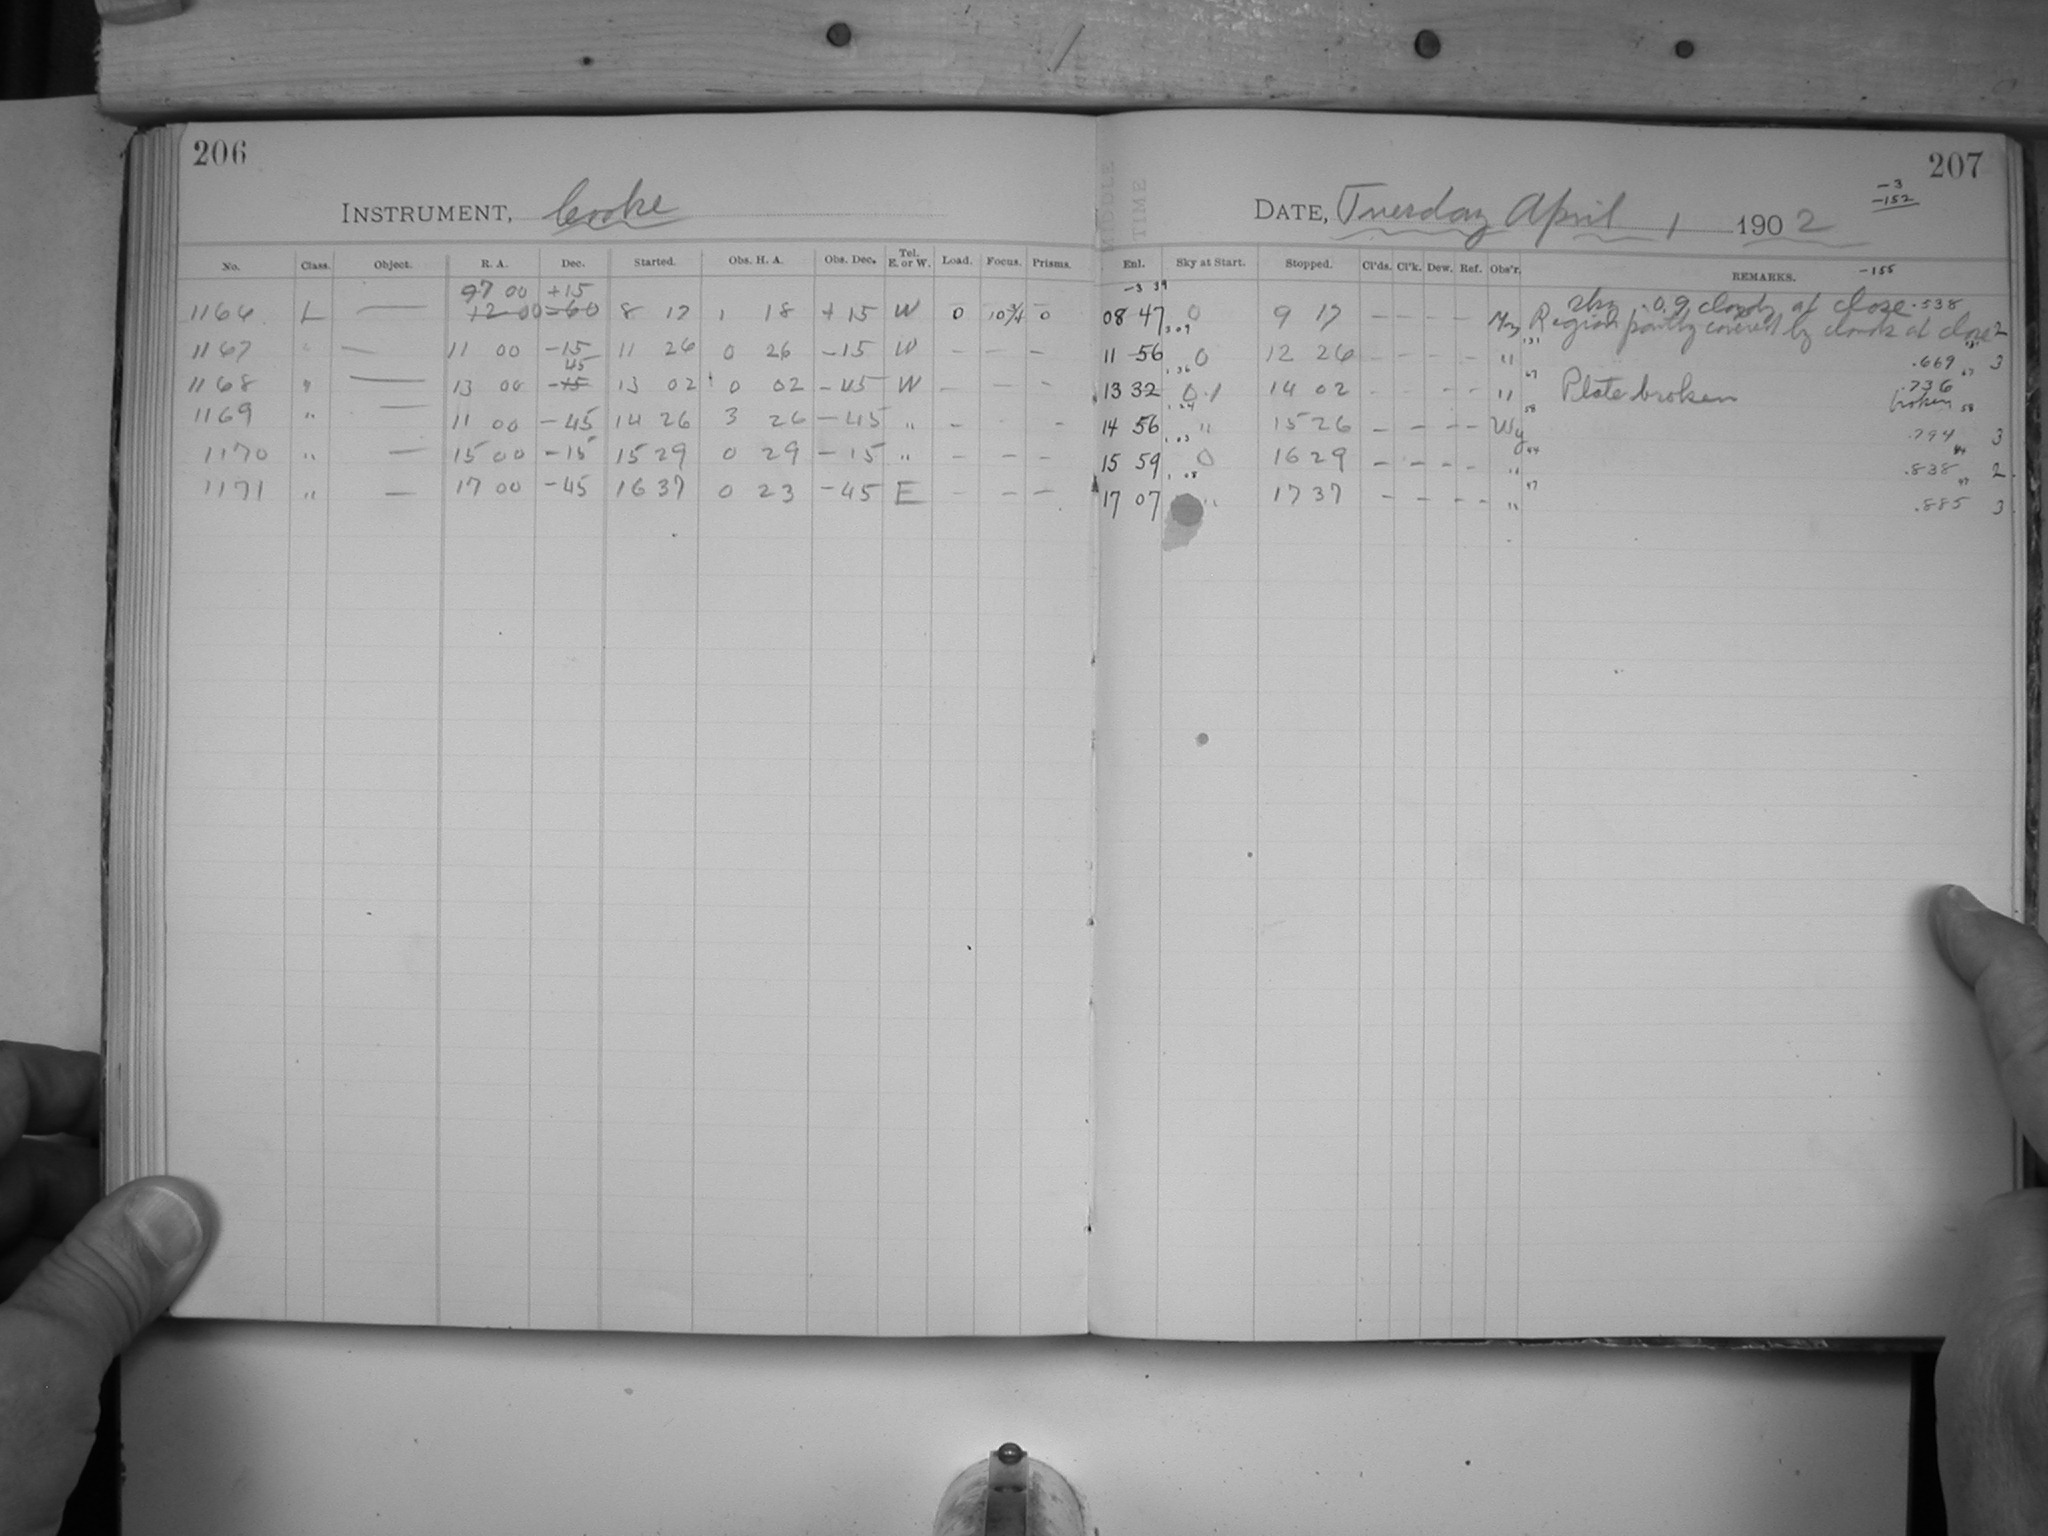 206
INSTRUMENT, Cooke
No. Class. Object. R. A. Dec. Started. Obs. H. A. Obs. Dec. Tel. E. or W. Load. Focus. Prisms.
07 00 +15
1166 L — 12 00 -60 8 17 1 18 +15 W 0 10 3/4 0
1167 " — 11 00 -15 11 26 0 26 -15 W - - -
45
1168 " — 13 00 -15 13 02 0 02 -45 W - - -
1169 " — 11 00 -45 14 26 3 26 -45 " - - -
1170 " — 15 00 -15 15 29 0 29 -15 " - - -
1171 " — 17 00 -45 16 37 0 23 -45 E - - -
207
MIDDLE
TIME
DATE, Tuesday April 1 1902
-3
-152
-155
Enl. Sky at Start. Stopped. Cl'ds. Cl'k. Dew. Ref. Obs'r. REMARKS.
-3 39
Sky 0.9 cloudy at close .538
08 47 0 9 17 - - - - Region partly covered by clouds at close 2
3.09 131 131
11 56 0 12 26 - - - - " .669 3
1.36 67 67
13 32 0.1 14 02 - - - - " Plate broken .736
broken
1.24 58 58
14 56 " 15 26 - - - - Wy .794 3
1.03 44 44
15 59 0 16 29 - - - - " .838 2.
1.08 47 47
17 07 " 17 37 - - - - " .885 3.